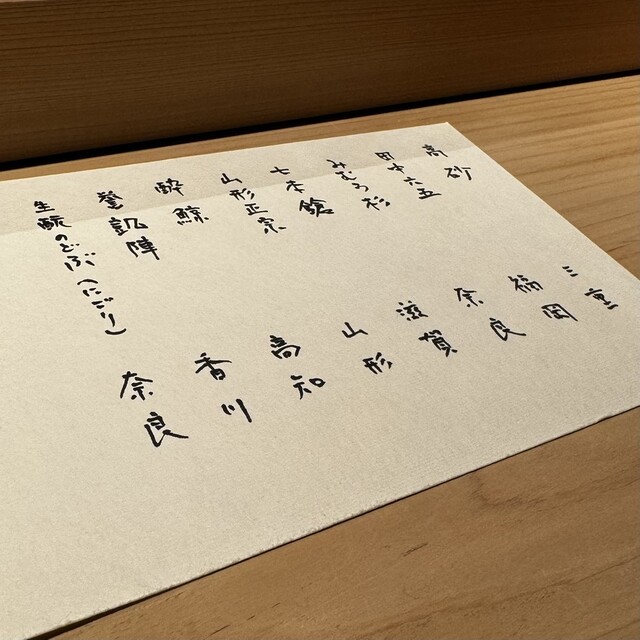 高砂 三重
田中六五 福岡
みむろ杉 奈良
七本鎗 滋賀
山形正宗 山形
酔鯨 高知
悦凱陣 香川
生酛のどぶ(にごり) 奈良